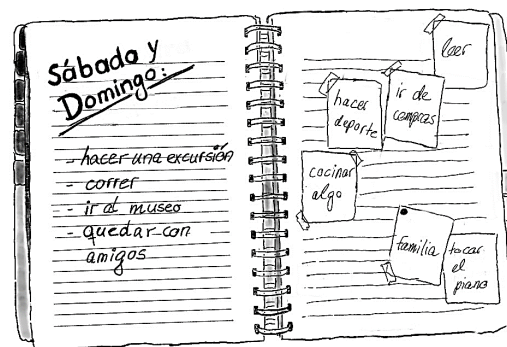 Sábado y
Domingo:
- hacer una excursión
- correr
- ir al museo
- quedar con
amigos
leer
hacer
deporte
ir de
compras
cocinar
algo
familia
tocar
el
piano